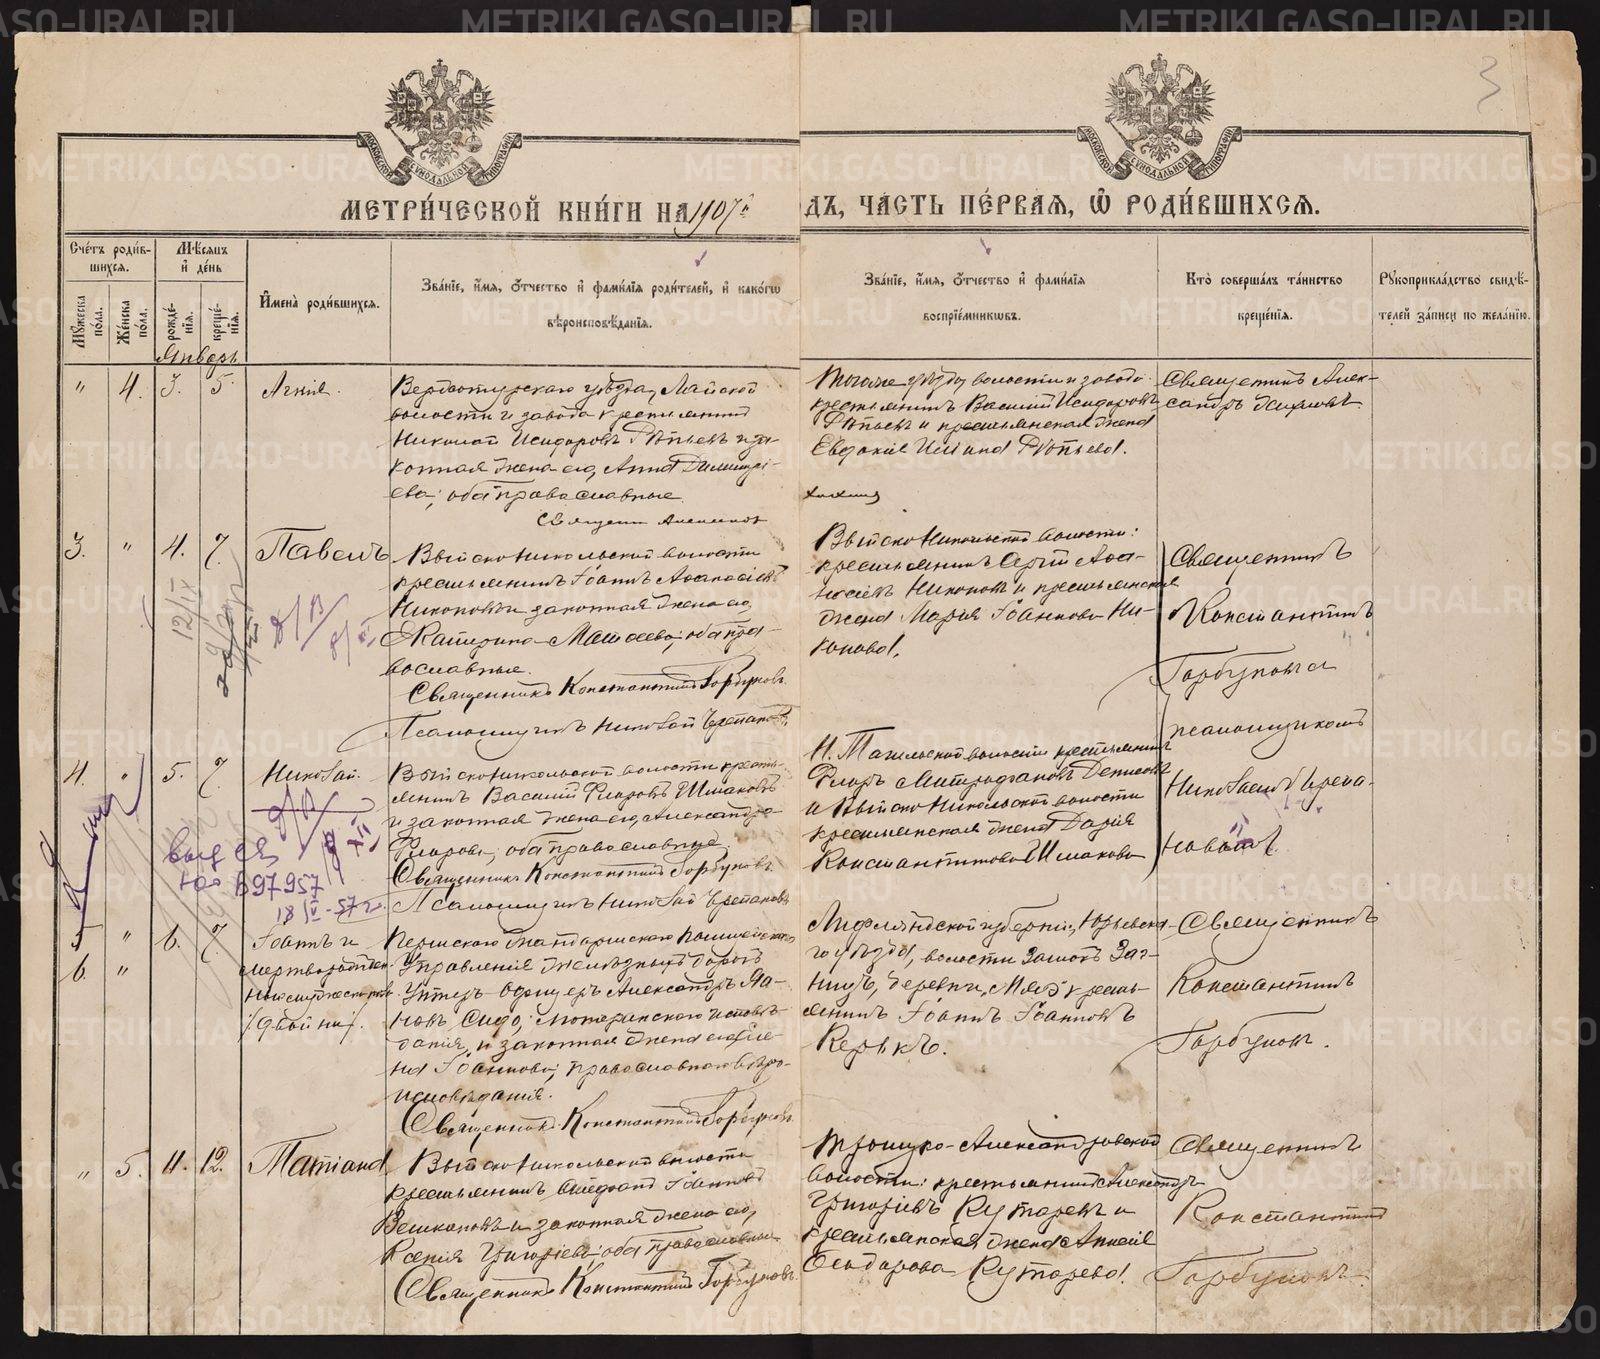 METRIKI.GASO-URAL.RU
3
МОСКОВСКОЙ СѴНОДАЛЬНОЙ ТИПОГРАФІИ
МОСКОВСКОЙ СѴНОДАЛЬНОЙ ТИПОГРАФІИ
МЕТРИ́ЧЕСКОЙ КНИ́ГИ НА 1907й
ДЪ, ЧА́СТЬ ПЕ́РВАЯ, Ѽ РОДИ́ВШИХСЯ.
Сче́тъ роди́вшихся.
Мꙋжеска по́ла.
Же́нска по́ла.
Мѣ́сяцъ и҆ де́нь
рожде́нїя.
креще́нїя.
И҆мена̀ роди́вшихся.
Зва́нїе, и҆́мя, ѻ҆́тчество и҆ фами́лїя роди́телей, и҆ како́гѡ
вѣроисповѣ́данїя.
Зва́нїе, и҆́мя, ѻ҆́тчество и҆ фами́лїя
воспрїе́мникѡвъ.
Кто̀ соверша́лъ та́инство
креще́нїя.
Рꙋкоприкла́дство свидѣ́-
телей за́писи по жела́нїю.
Январь
" 4. 3. 5. Агнія.
Верхотурскаго уѣзда, Лайской
волости и завода крестьянинъ
Николай Исидоровъ Рѣпьевъ и за-
конная жена его, Анна Димитрі-
ева; оба православные.
Тогоже уѣзда, волости и завода
крестьянинъ Василій Исидоровъ
Рѣпьевъ и крестьянская жена
Евдокія Рѣпьева.
Священникъ Алек-
сандръ
3. " 4. 7. Павелъ
Выйско Николькой волости
крестьянинъ Іоаннъ Аѳанасіевъ
Никоновъ и законная жена его,
Екатерина Матѳеева; оба пра-
вославные.
Священникъ Константинъ Горбуновъ.
Псаломщикъ Николай Черепановъ
Выйско Никольской волости:
крестьянинъ Сергій Аѳа-
насіевъ Никоновъ и крестьянская
жена Марія Іоаннова Ни-
конова.
Священникъ
Константинъ
Горбуновъ и
псаломщикомъ
Николаемъ Черепа-
новымъ.
12/IX
4. " 5. 7. Николай.
Выйско Никольской волости кресть-
янинъ Василій Флоровъ Шмаковъ
и законная жена его, Александра
Флорова; оба православные.
Священникъ Константинъ Горбуновъ.
Псаломщикъ Николай Черепановъ
Н. Тагильской волости крестьянинъ
Флоръ Митрофановъ Денисовъ
и Выйско Никольской волости
крестьянская жена Дарія
Константинова Шмакова
897957
18/IV-57г.
5 " 6. 7. Іоаннъ и
6. " мертворожден.
/двойни/.
Пермскаго Жандармскаго Полицейскаго
Управленія желѣзныхъ дорогъ
Унтеръ-Офицеръ Александръ Яа-
новъ Сидо, Лютеранскаго исповѣ-
данія, и законная жена его Еле-
на Іоаннова, православнаго вѣро-
исповѣданія.
Священникъ Константинъ Горбуновъ.
Лифляндской губерніи, Юрьевска-
го уѣзда, волости
деревни, кресть-
янинъ Іоаннъ Іоанновъ
Священникъ
Константинъ
Горбуновъ.
" 5. 11. 12. Татіана
Выйско Никольской волости
крестьянинъ Стефанъ Іоанновъ
Вешкановъ и законная жена его,
Ксенія Григоріева; оба православные
Священникъ Константинъ Горбуновъ.
Троицко-Александровской
волости: крестьянинъ Александръ
Григоріевъ Кутаревъ и
крестьянская жена
Ѳеодорова Кутарева.
Священникъ
Константинъ
Горбуновъ.